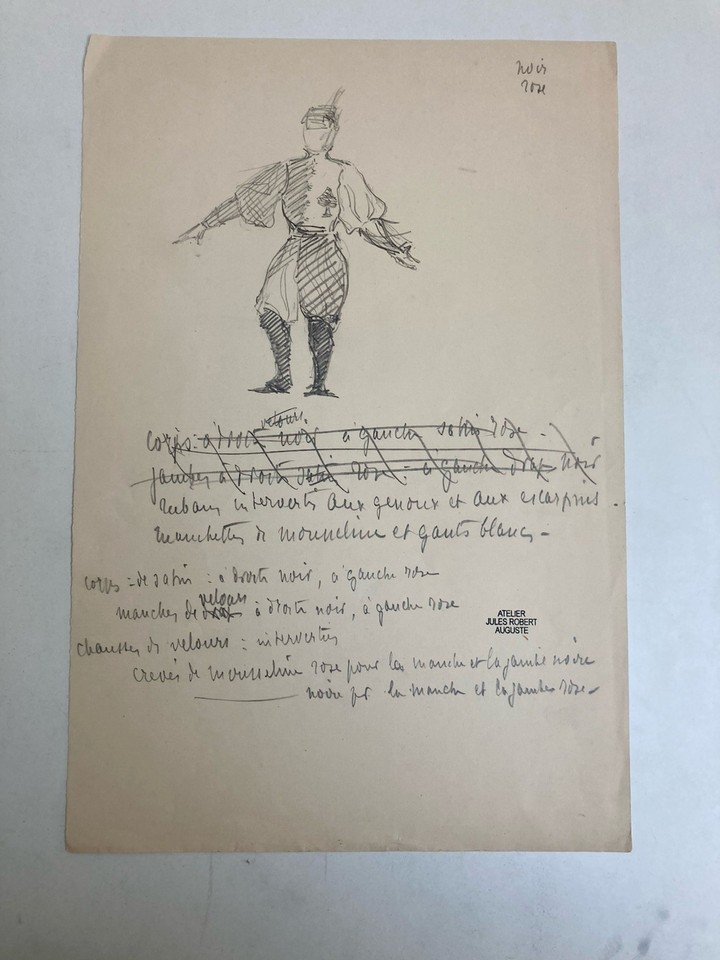 noir
rose
velours
corps : à droite noir à gauche satin rose -
jambes à droite satin rose - à gauche drap noir
rubans intervertis aux genoux et aux escarpins.
manchettes de mousseline et gants blancs -
corps = de satin : à droite noir, à gauche rose
velours
manches de drap à droite noir, à gauche rose
chausses de velours : interverties
crevés de mousseline rose pour la manche et la jambe noire
noire pr la manche et la jambe rose -
ATELIER
JULES ROBERT
AUGUSTE